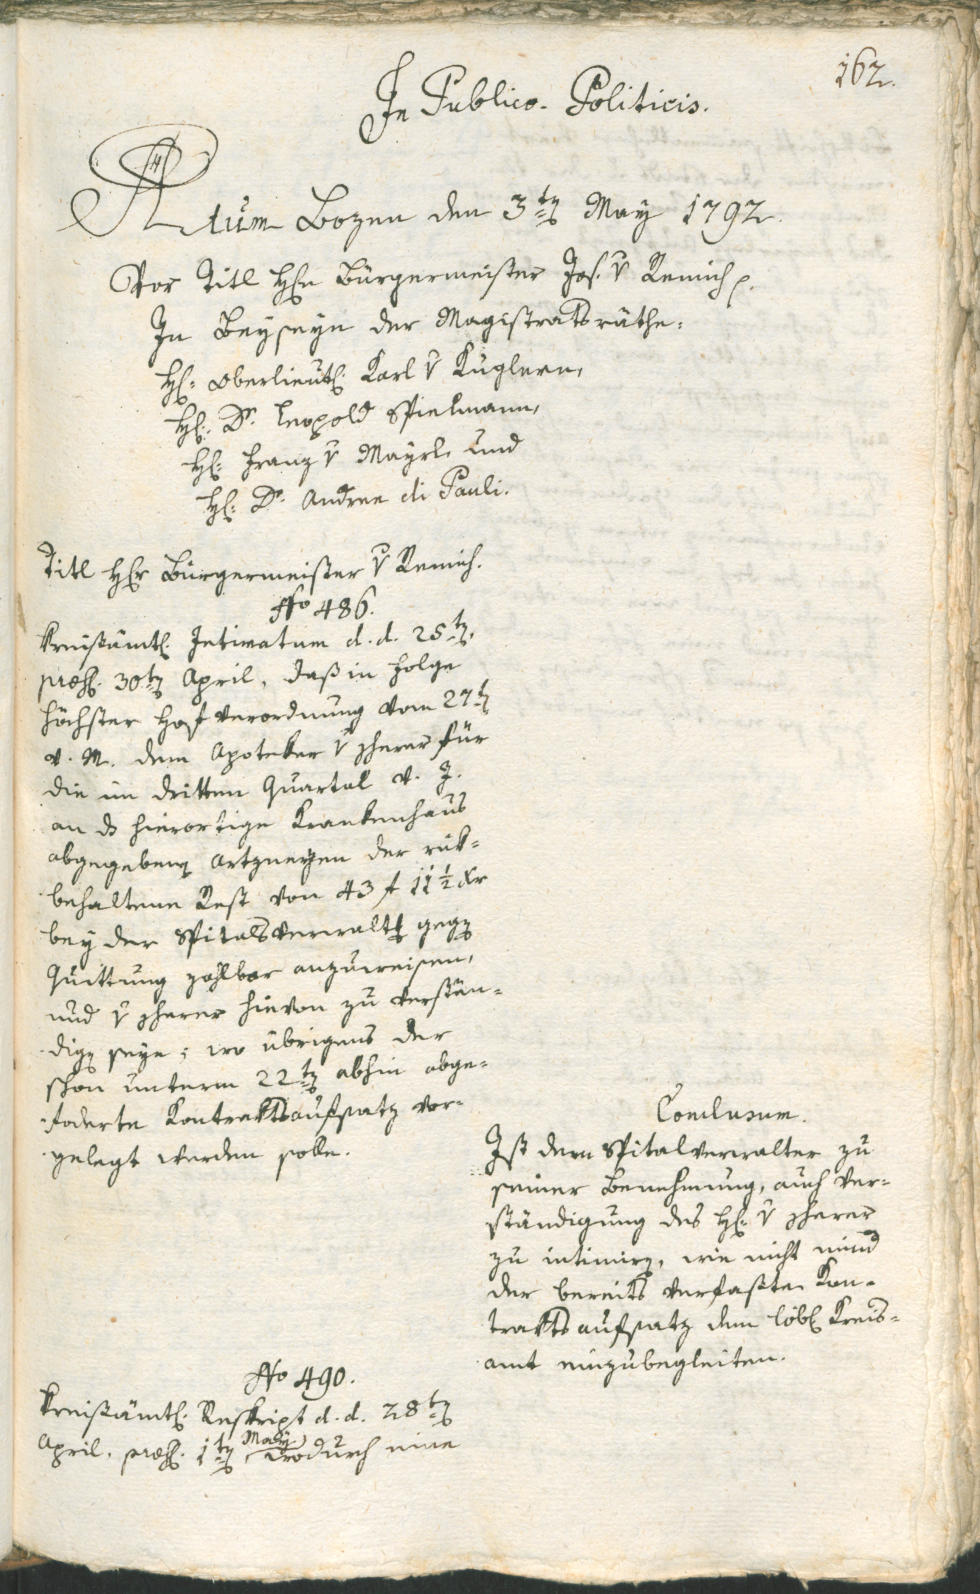 162.
In Publico-Politicis.
Actum Bozen den 3ten May 1792.
Vor Titl Hhn Bürgermeister Jos. v Remich p.
In Beyseyn der Magistratsräthe:
H: Oberlieut: Karl v Kuglern,
H: Dr. Leopold Spielmann,
H: Franz v Mayrl und
H: Dr. Andree di Pauli.
Titl Hhr Bürgermeister v Remich.
No 486.
Kreisämtl. Intimatum d. d. 25ten,
præs. 30ten April, daß in Folge
höchster Hofverordnung vom 27ten
v. M. dem Apoteker v zherer für
die im dritten Quartal v. J.
an ds hierortige Krankenhaus
abgegebenen Artzneyen der rük-
behaltene Rest von 43 f 11 1/2 Kr
bey der Spitalsverwaltg gegen
Quittung zahlbar anzuweisen,
und v zherer hievon zu verstän-
digen seye; wo übrigens der
schon unterm 22ten abhin abge-
foderte Kontraktsaufsatz vor-
gelegt werden solle.
Conclusum.
Ist dem Spitalverwalter zu
seiner Benehmung, auch Ver-
ständigung des H: v zherer
zu intimiren, wie nicht mind
der bereits verfaßte Kon-
traktsaufsatz dem löbl Kreis-
amt einzubegleiten.
No 490.
Kreisämtl. Reskript d. d. 28ten
April, præs. 1ten May, wodurch eine